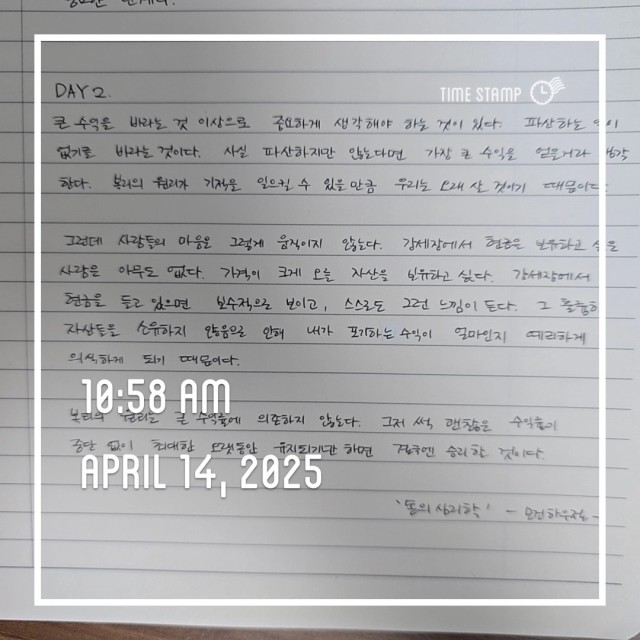 DAY 2.
TIME STAMP
큰 수익을 바라는 것 이상으로 중요하게 생각해야 하는 것이 있다. 파산하는 이
없기를 바라는 것이다. 사실 파산하지만 않는다면 가장 큰 수익을 얻을거라 생각
한다. 복리의 원리가 기적을 일으킬 수 있을만큼 우리는 오래 살 것이기 때문이다.
그런데 사람들의 마음은 그렇게 움직이지 않는다. 강세장에서 현금을 보유하고 싶은
사람은 아무도 없다. 가격이 크게 오늘 자산을 보유하고 싶다. 강세장에서
현금을 들고 있으면 보수적으로 보이고, 스스로도 그런 느낌이 든다. 그 훌륭한
자산들을 소유하지 않음으로 인해 내가 포기하는 수익이 얼마인지 예리하게
의식하게 되기 때문이다.
10:58 AM
복리의 원리는 큰 수익률에 의존하지 않는다. 그저 썩 괜찮은 수익률이
중단 없이 최대한 오랫동안 유지되기만 하면 결국엔 승리할 것이다.
APRIL 14, 2025
'돈의 심리학' - 모건 하우절 -